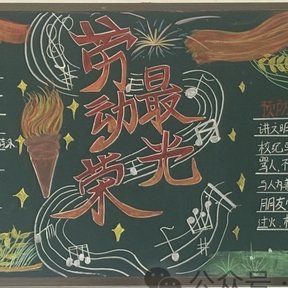 劳动最光荣
讲文明
校纪
骂人,不
与人为
朋友
过火,
公众号